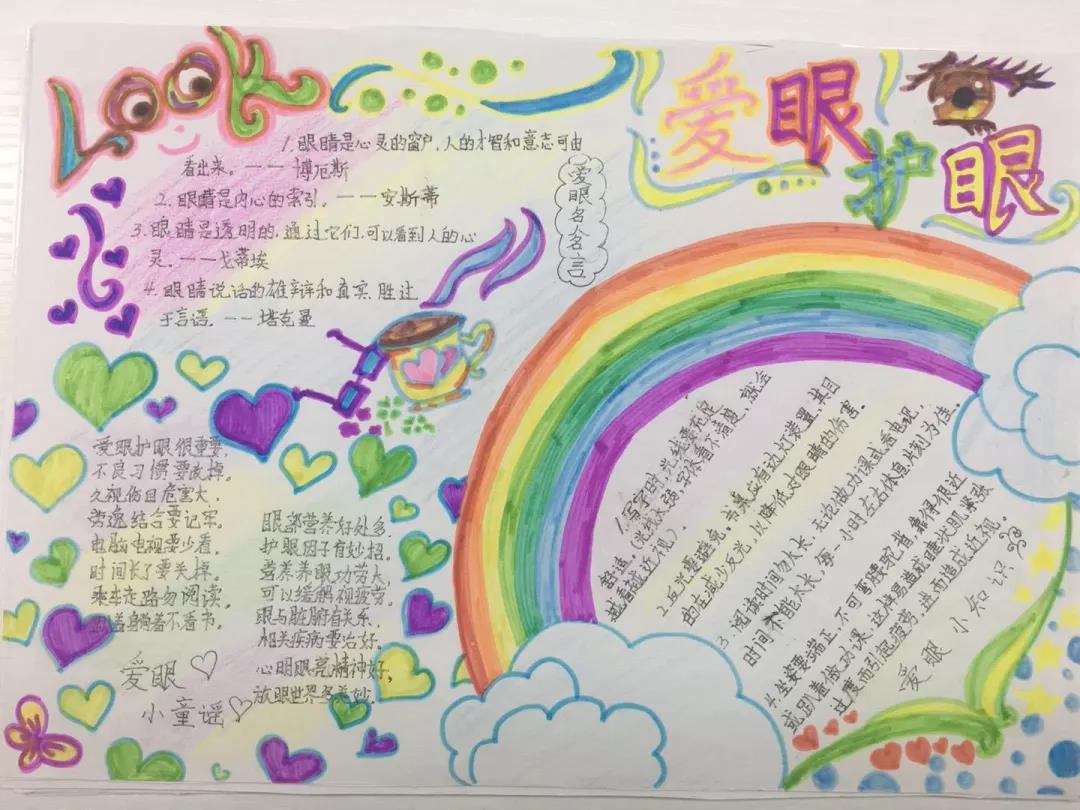 LOOK
爱眼护眼
1.眼睛是心灵的窗户,人的才智和意志可由
看出来。——博厄斯
2.眼睛是内心的索引。——安斯蒂
3.眼睛是透明的,通过它们,可以看到人的心
灵.——戈蒂埃
4.眼睛说话的雄辩和真实,胜过
于言语.——塔克曼
爱眼名人名言
爱眼护眼很重要,
不良习惯要改掉。
久视伤目危害大,
劳逸结合要记牢。
电脑电视要少看,
时间长了要关掉。
乘车走路勿阅读,
躺着看不看书。
爱眼
小童谣
眼部营养好处多,
护眼因子有妙招.
营养养眼功劳大,
可以缓解视疲劳。
眼与脏腑有关系,
相关疾病要治好。
心明眼亮精神好,
放眼世界多美妙.
1.写字时,光线要充足
舒适(光线太强,字体看不清楚,就会
越看越近视)。
2.反光要避免。书桌应有边灯装置,其目
的在减少反光,以降低对眼睛的伤害。
3.阅读时间勿太长,无论做功课或看电视,
时间不能太长,每一小时左右休息片刻为佳。
4.坐姿要端正,不可弯腰驼背,靠得很近
或趴着做功课,这样易造成睫状肌紧张
过度而引起疲劳,进而造成近视。
爱眼小知识